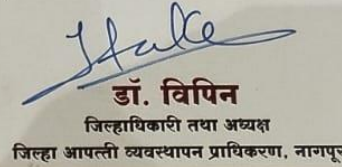 डॉ. विपिन
जिल्हाधिकारी तथा अध्यक्ष
जिल्हा आपत्ती व्यवस्थापन प्राधिकरण, नागपूर